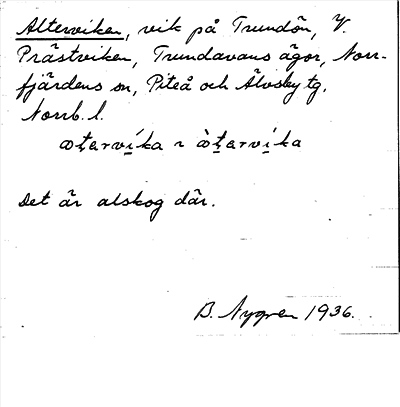 Alterviken, vik på Trundön, V.
Prästviken, Trundavans ägor, Norr-
fjärdens sn, Piteå och Älvsby tg.
Norrb. l.
Det är alskog där.
B. Nygren 1936.